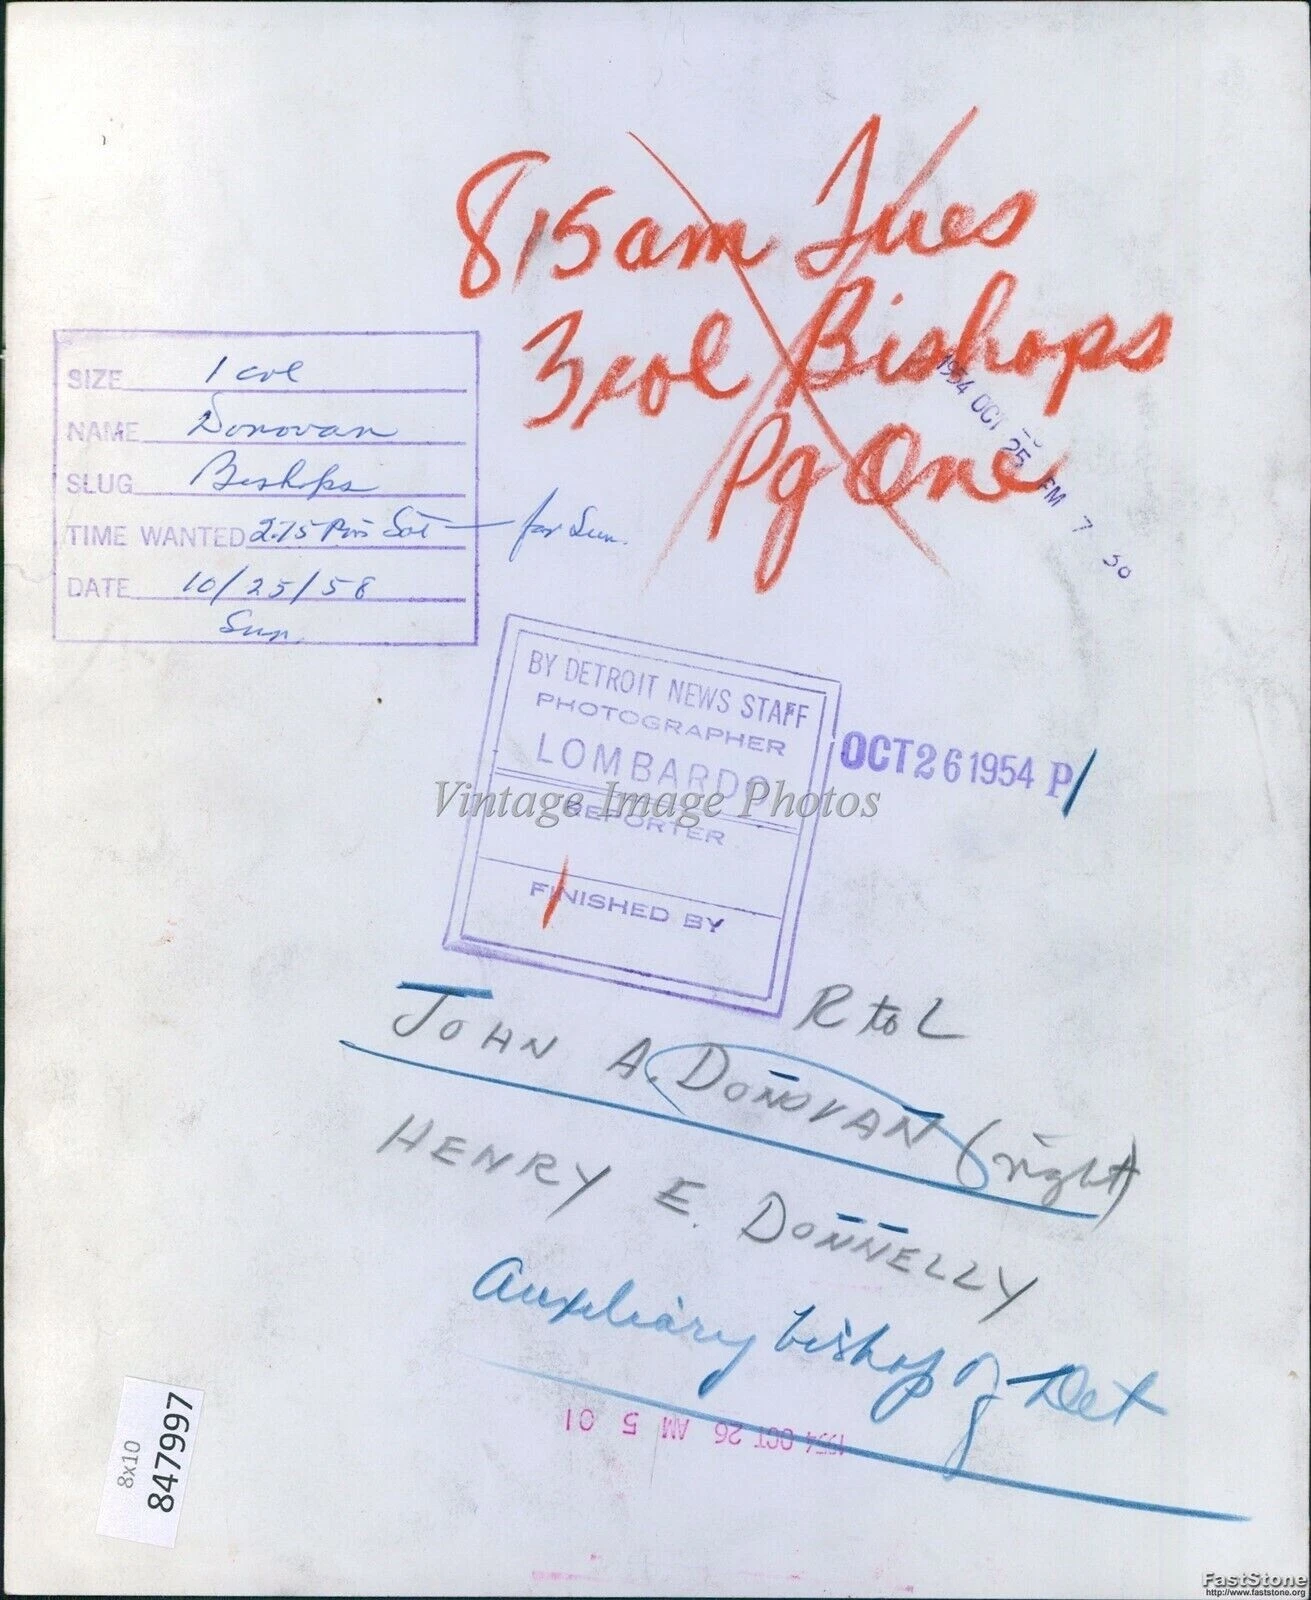 815am Tues
3 col Bishops
Pg One
1954 OCT 25 PM 7 50
SIZE 1 col
NAME Donovan
SLUG Bishops
TIME WANTED 2.15 Pm Sat — for Sun.
DATE 10/25/58
Sun.
BY DETROIT NEWS STAFF
PHOTOGRAPHER
LOMBARDO
REPORTER
FINISHED BY
OCT 26 1954 P
Vintage Image Photos
R to L
JOHN A. DONOVAN (right)
HENRY E. DONNELLY
Auxiliary bishop of Det
1954 OCT 26 AM 5 01
8x10
847997
FastStone
http://www.faststone.org